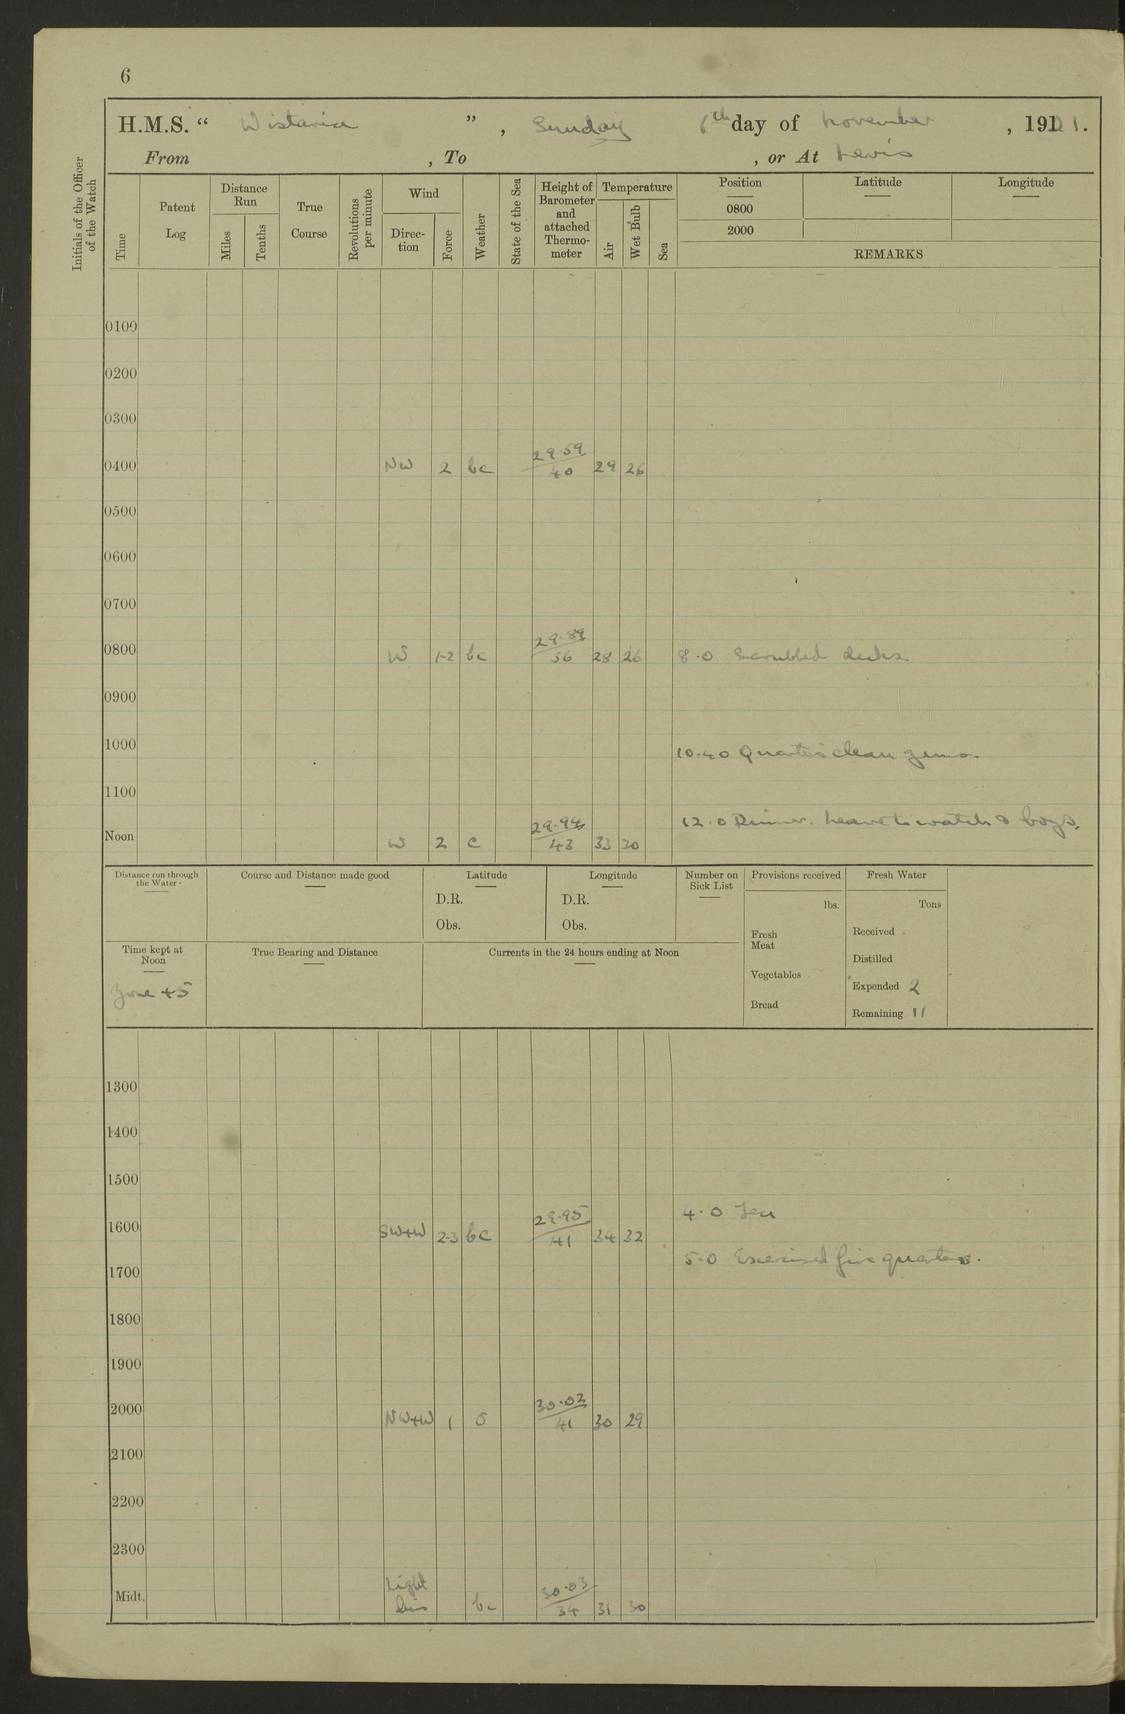 6
H.M.S. “ Wistaria ” , Sunday 6th day of November , 1921.
From , To , or At Levis
Initials of the Officer of the Watch
Time
Patent Log
Distance Run
Miles
Tenths
True Course
Revolutions per minute
Wind
Direction
Force
Weather
State of the Sea
Height of Barometer and attached Thermometer
Temperature
Air
Wet Bulb
Sea
Position Latitude Longitude
0800
2000
REMARKS
0100
0200
0300
0400 NW 2 bc 29.59/40 29 26
0500
0600
0700
0800 W 1-2 bc 29.89/36 28 26 8.0 Scrubbed decks.
0900
1000 10.40 Quarters clean guns.
1100
Noon W 2 c 29.94/43 33 30 12.0 Dinner. Leave to watch & boys.
Distance run through the Water
Course and Distance made good
Latitude
D.R.
Obs.
Longitude
D.R.
Obs.
Number on Sick List
Provisions received
lbs.
Fresh Meat
Vegetables
Bread
Fresh Water
Tons
Received
Distilled
Expended 2
Remaining 11
Time kept at Noon
Zone +5
True Bearing and Distance
Currents in the 24 hours ending at Noon
1300
1400
1500
1600 SW+W 2-3 bc 29.95/41 34 32 4.0 Tea
5.0 Exercised fire quarters.
1700
1800
1900
2000 NW+W 1 o 30.02/41 30 29
2100
2200
2300
Midt. Light airs bc 30.03/34 31 30